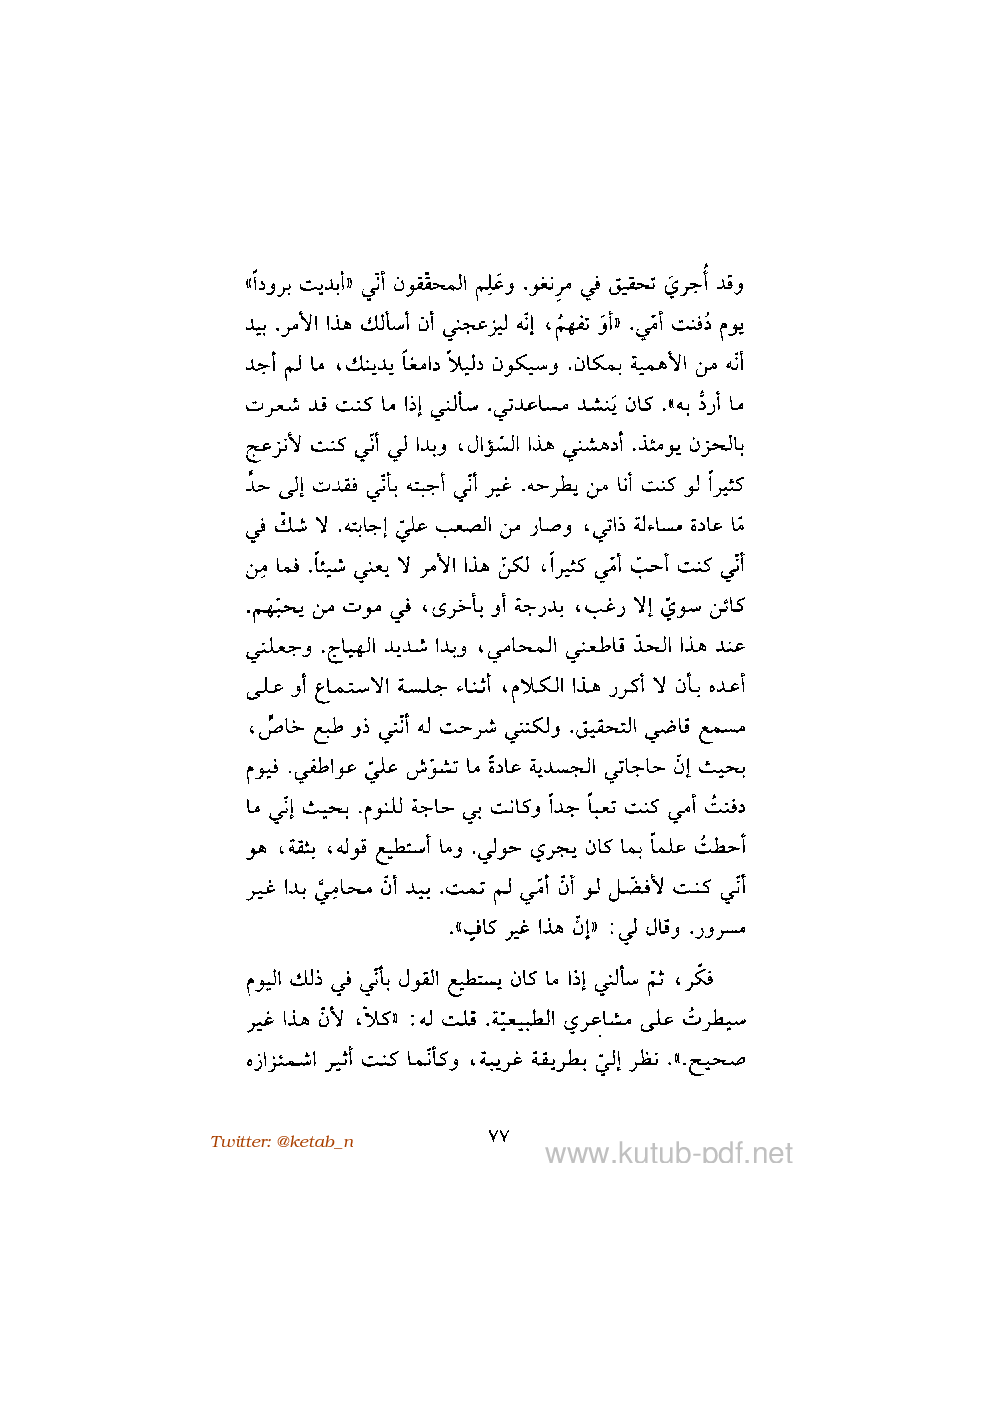 وقد أُجريَ تحقيق في مرِنغو. وعَلِم المحقّقون أنّي «أبديت بروداً»
يوم دُفنت أمّي. «أوَ تفهمُ، إنّه ليزعجني أن أسألك هذا الأمر. بيد
أنّه من الأهمية بمكان. وسيكون دليلاً دامغاً يدينك، ما لم أجد
ما أردُّ به». كان يَنشد مساعدتي. سألني إذا ما كنت قد شعرت
بالحزن يومئذ. أدهشني هذا السّؤال، وبدا لي أنّي كنت لأنزعج
كثيراً لو كنت أنا من يطرحه. غير أنّي أجبته بأنّي فقدت إلى حدٍّ
مّا عادة مساءلة ذاتي، وصار من الصعب عليّ إجابته. لا شكّ في
أنّي كنت أحبّ أمّي كثيراً، لكنّ هذا الأمر لا يعني شيئاً. فما مِن
كائن سويّ إلا رغب، بدرجة أو بأخرى، في موت من يحبّهم.
عند هذا الحدّ قاطعني المحامي، وبدا شديد الهياج. وجعلني
أعده بأن لا أكرر هذا الكلام، أثناء جلسة الاستماع أو على
مسمع قاضي التحقيق. ولكنني شرحت له أنّني ذو طبع خاصٍّ،
بحيث إنّ حاجاتي الجسدية عادةً ما تشوّش عليّ عواطفي. فيوم
دفنتُ أمي كنت تعباً جداً وكانت بي حاجة للنوم. بحيث إنّي ما
أحطتُ علماً بما كان يجري حولي. وما أستطيع قوله، بثقة، هو
أنّي كنت لأفضّل لو أنّ أمّي لم تمت. بيد أنّ محامِيَّ بدا غير
مسرور. وقال لي: «إنّ هذا غير كافٍ».
فكّر، ثمّ سألني إذا ما كان يستطيع القول بأنّي في ذلك اليوم
سيطرتُ على مشاعري الطبيعيّة. قلت له: «كلاّ، لأنّ هذا غير
صحيح.». نظر إليّ بطريقة غريبة، وكأنّما كنت أثير اشمئزازه
٧٧
Twitter: @ketab_n
www.kutub-pdf.net